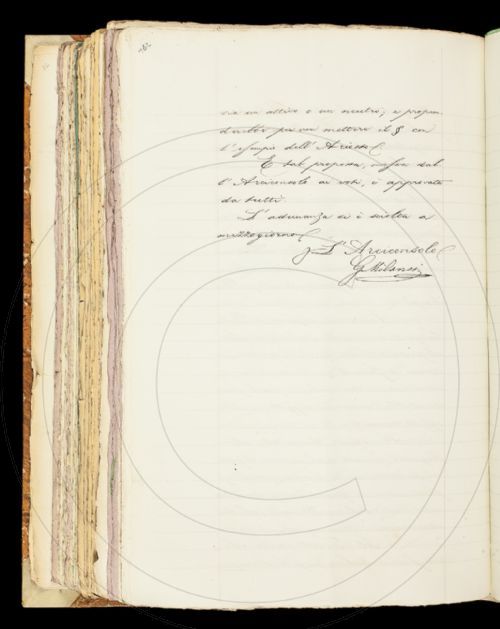 sia un attivo o un neutro; e propon-
derebbe per un mettere il § con
l'esempio dell'Ariosto.
E tal proposta, messa dal-
l'Arciconsolo ai voti, è approvata
da tutti.
L'adunanza si è sciolta a
mezzogiorno.
L'Arciconsolo
G Milanesi